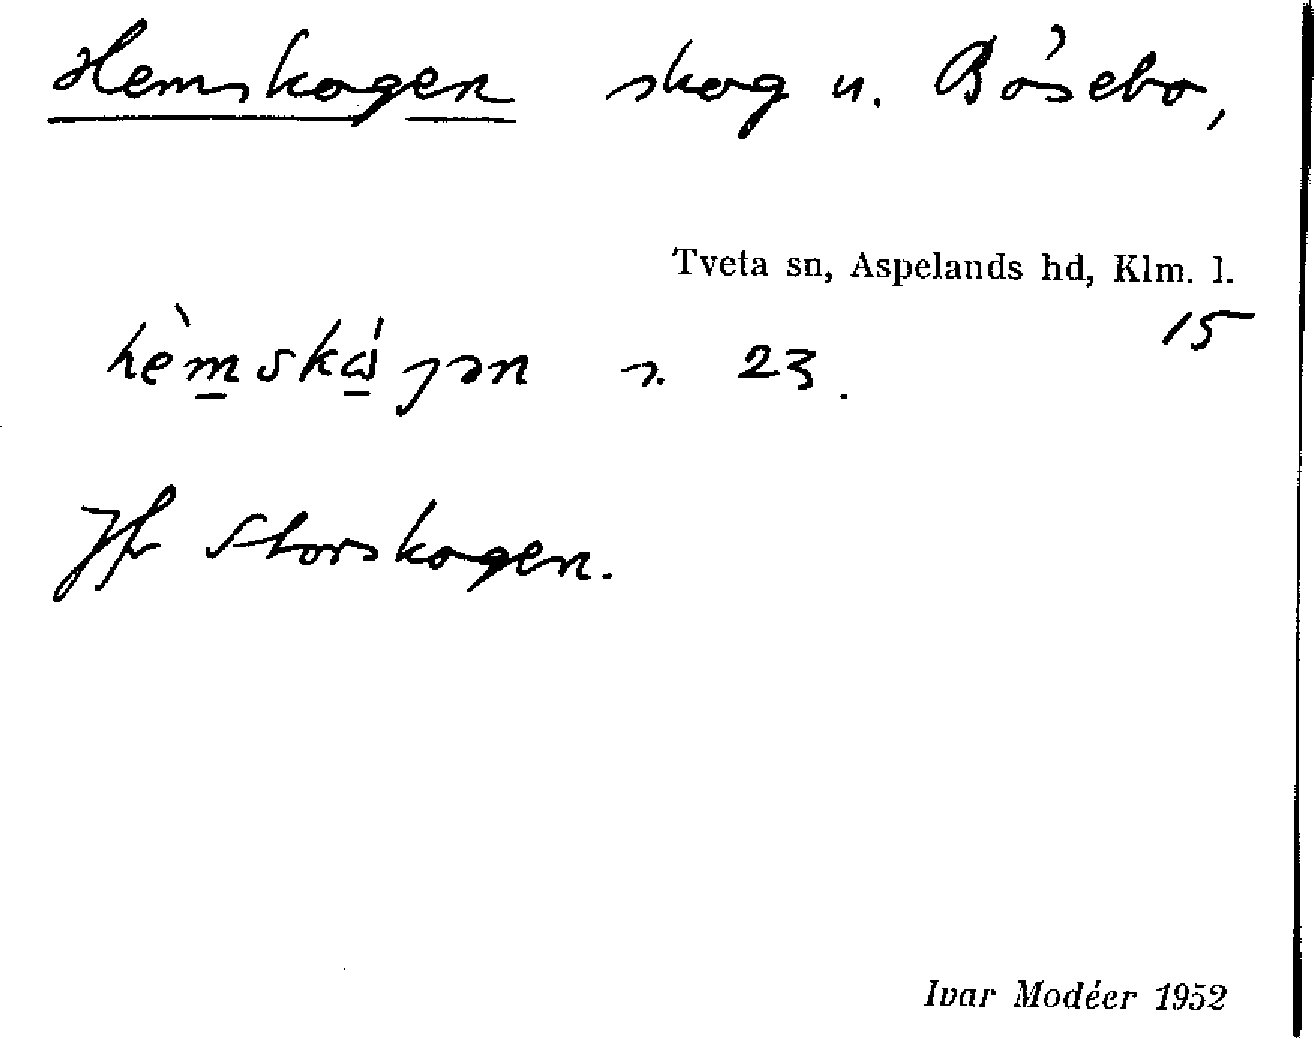 Hemskogen skog u. Bösebo,
Tveta sn, Aspelands hd, Klm. l.
15
s. 23.
Jfr Storskogen.
Ivar Modéer 1952